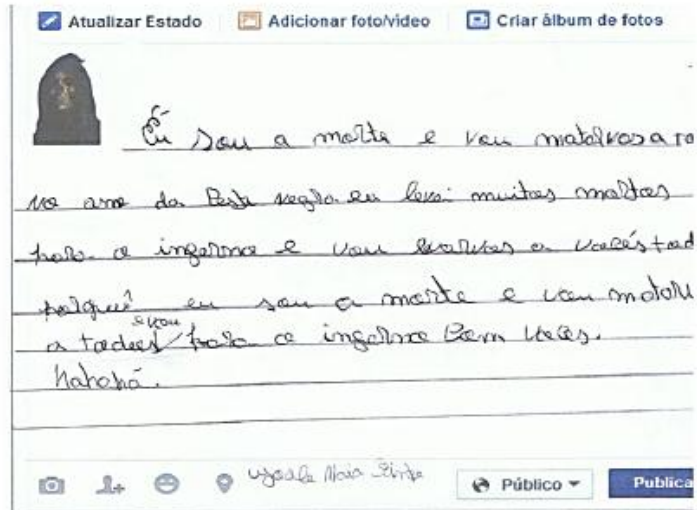 Atualizar Estado Adicionar foto/vídeo Criar álbum de fotos
Eu sou a morte e vou matalvos a to
no ano da Peste negra eu levei muitas mortas
para o inferno e vou levarvos a vocês tod
porquê eu sou a morte e vou matar
e vou
a todos para o inferno com voces.
hahahá.
Maia
Público Publica